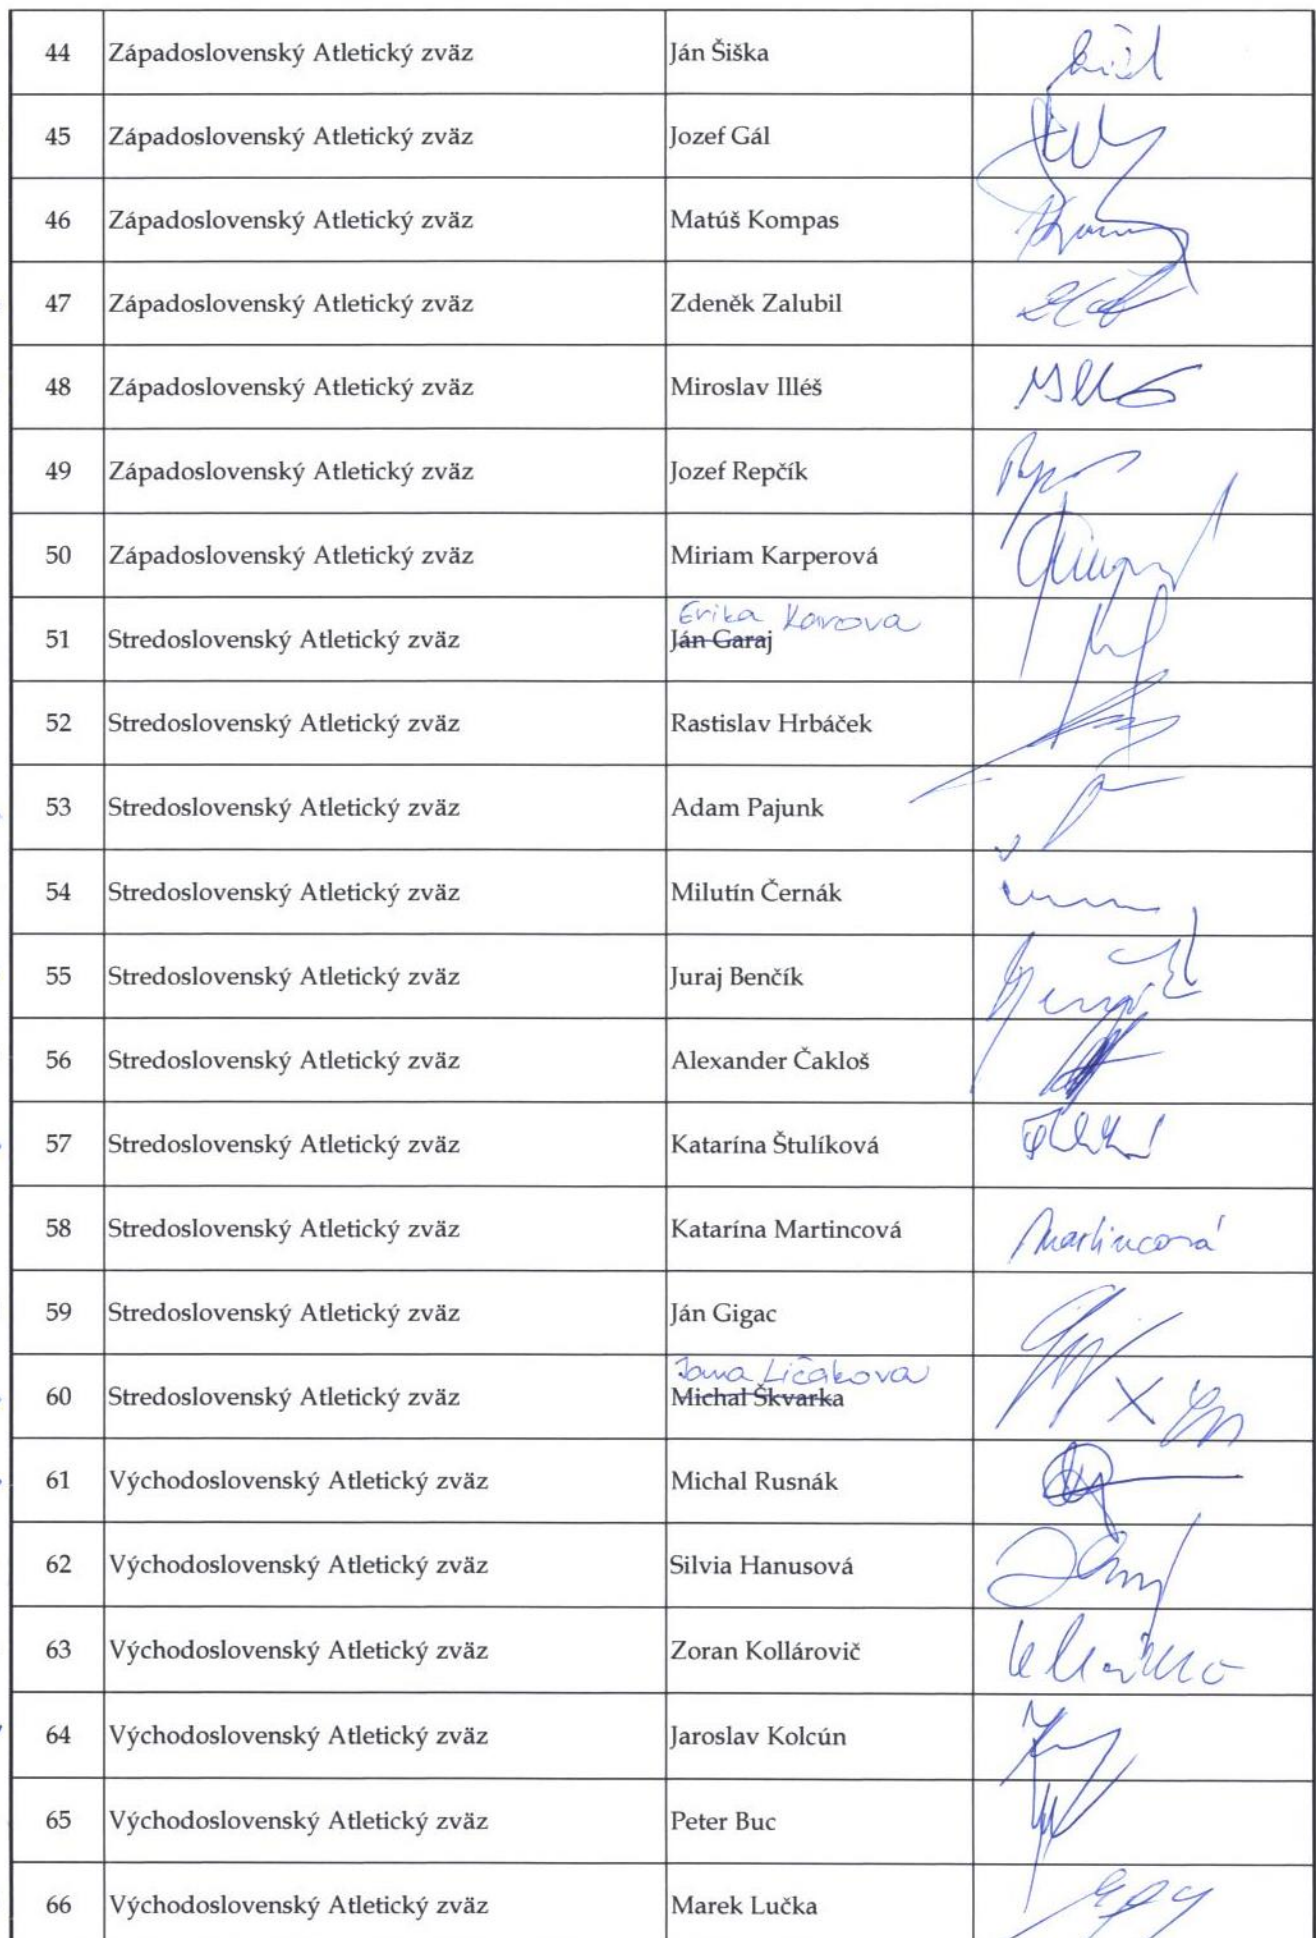 44 Západoslovenský Atletický zväz Ján Šiška
45 Západoslovenský Atletický zväz Jozef Gál
46 Západoslovenský Atletický zväz Matúš Kompas
47 Západoslovenský Atletický zväz Zdeněk Zalubil
48 Západoslovenský Atletický zväz Miroslav Illéš
49 Západoslovenský Atletický zväz Jozef Repčík
50 Západoslovenský Atletický zväz Miriam Karperová
Erika
51 Stredoslovenský Atletický zväz Ján Garaj
52 Stredoslovenský Atletický zväz Rastislav Hrbáček
53 Stredoslovenský Atletický zväz Adam Pajunk
54 Stredoslovenský Atletický zväz Milutín Černák
55 Stredoslovenský Atletický zväz Juraj Benčík
56 Stredoslovenský Atletický zväz Alexander Čakloš
57 Stredoslovenský Atletický zväz Katarína Štulíková
58 Stredoslovenský Atletický zväz Katarína Martincová Martincová
59 Stredoslovenský Atletický zväz Ján Gigac
Jana Ličáková
60 Stredoslovenský Atletický zväz Michal Škvarka
61 Východoslovenský Atletický zväz Michal Rusnák
62 Východoslovenský Atletický zväz Silvia Hanusová
63 Východoslovenský Atletický zväz Zoran Kollárovič
64 Východoslovenský Atletický zväz Jaroslav Kolcún
65 Východoslovenský Atletický zväz Peter Buc
66 Východoslovenský Atletický zväz Marek Lučka